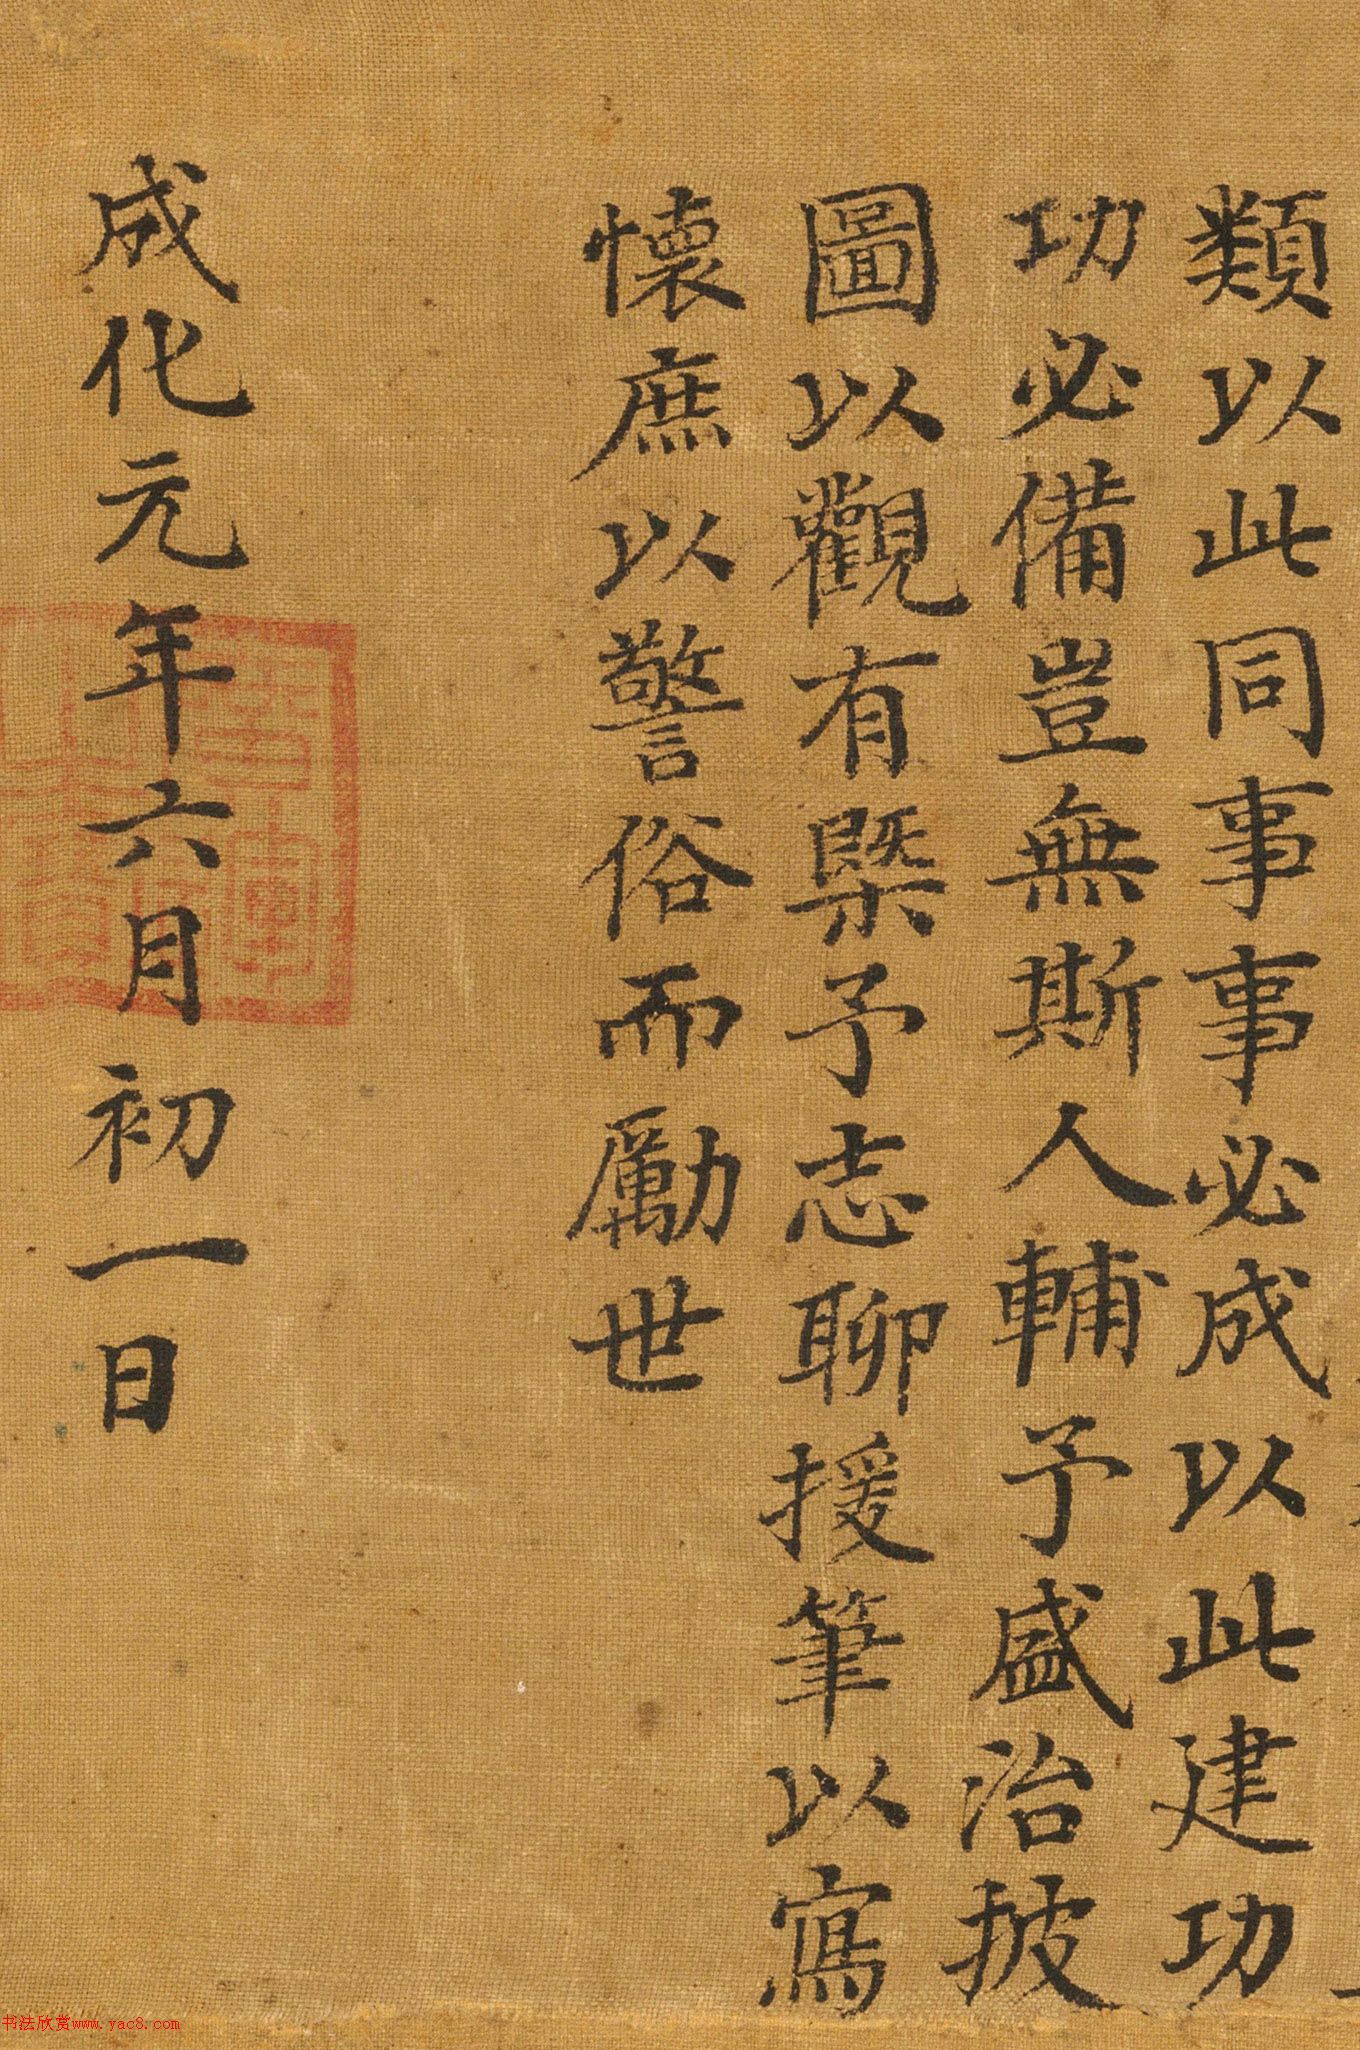 類以此同事事必成以此建功
功必備豈無斯人輔予盛治披
圖以觀有槩予志聊援筆以寫
懷庶以警俗而勵世
成化元年六月初一日
书法欣赏www.yac8.com